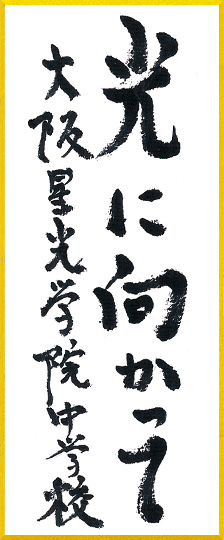 光に向かって
大阪星光学院中学校